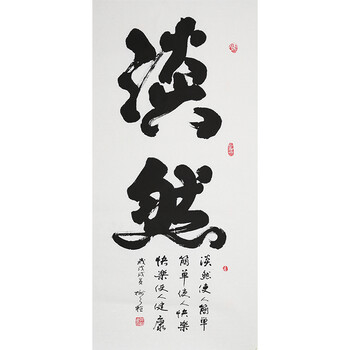 淡然
淡然使人簡單
簡單使人快樂
快樂使人健康
戊戌